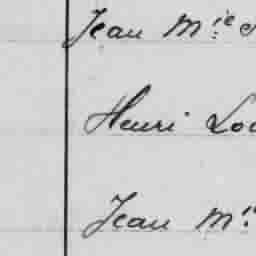 Jean M.ie
Henri Lou
Jean M.